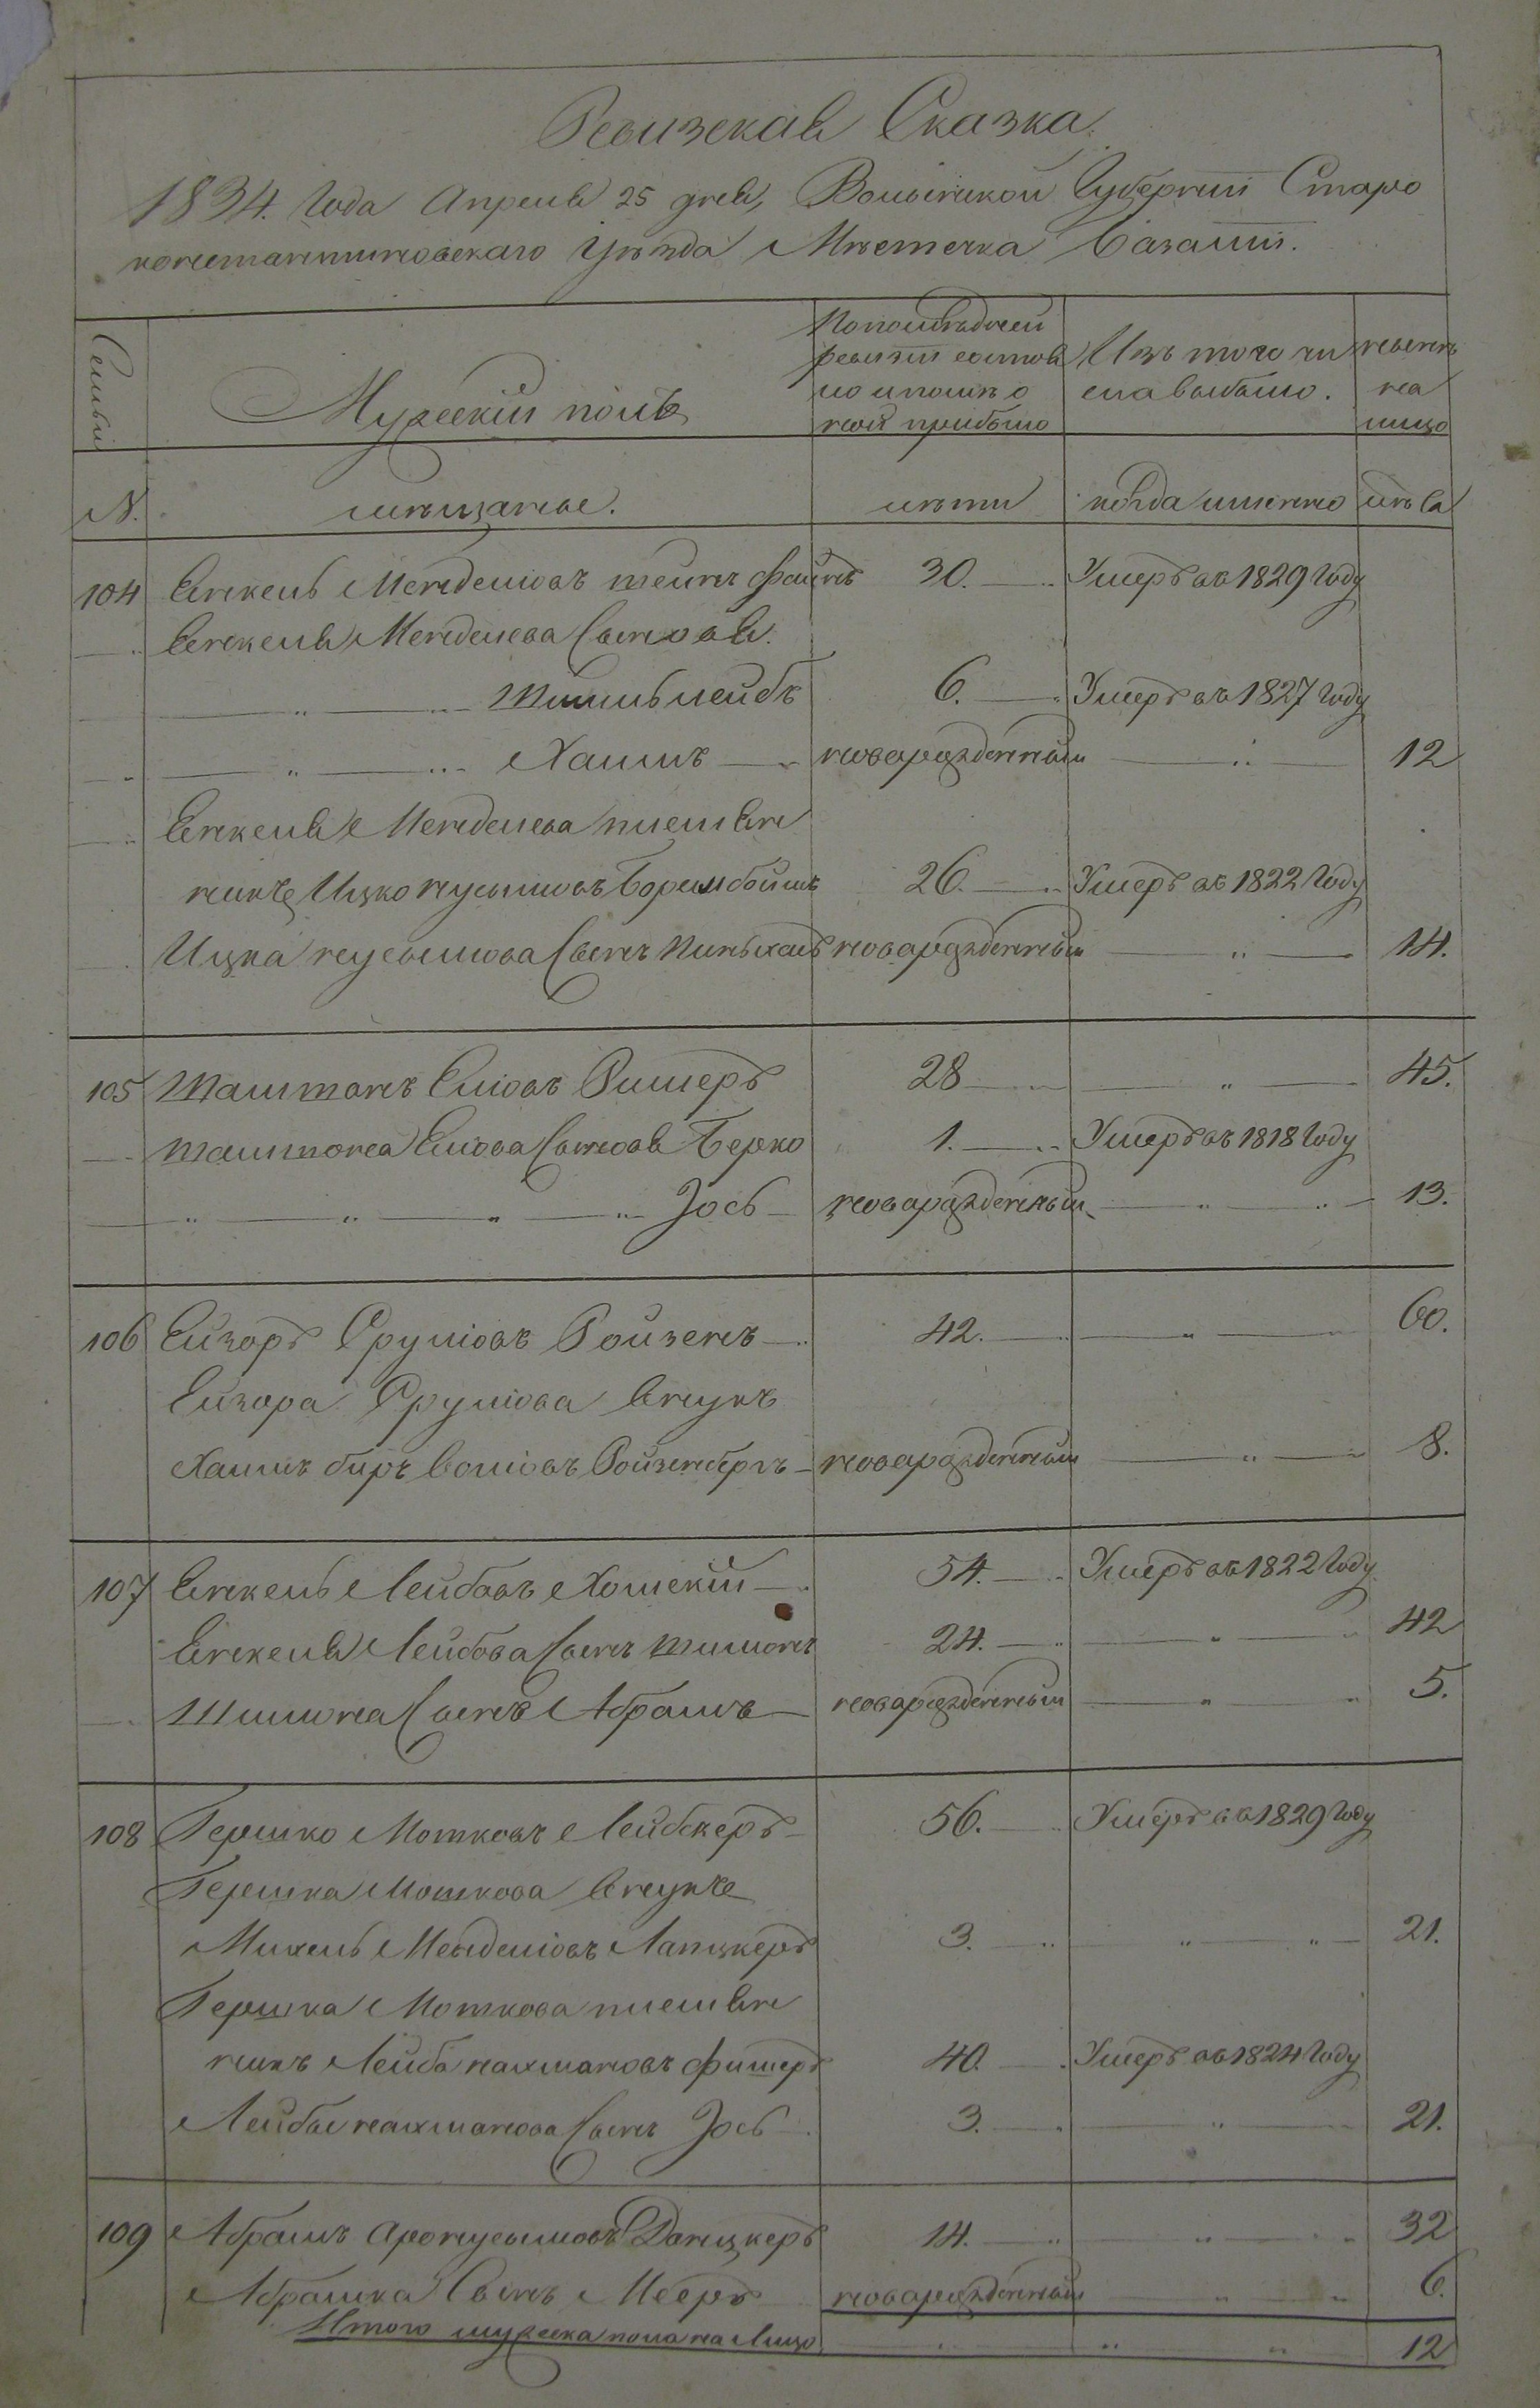 Ревизская Сказка.
1834. Года Апреля 25 дня, Волынской Губернии Старо
константиновскаго Уѣзда Мѣстечка Базалии.
Семьи
Мужескій полъ
Попоследней ревизіи состояло и после оной прибыло
Изъ того числа выбыло.
ныне на лицо
N. мѣщанѣе. лѣты когда имянно лѣта
104 Енкель Менделіовъ 30. Умеръ въ 1829 Году
Енкеля Менделева Сыновья.
6. Умеръ въ 1827 Году
Хаимъ новорожденный 12
Енкеля Менделева племян
никъ Ицко Нусымовъ 26. Умеръ въ 1822 Году
Ицка Нусымова Сынъ Пинькасъ новорожденный 14.
105 Еліовъ 28 45.
Еліова Сыновья Берко 1. Умеръ въ 1818 Году
Іось новорожденный 13.
106 Ейзоръ Сруліовъ Ройзенъ 42. 60.
Ейзора Сруліова Внукъ
Хаимъ Ройзенбергъ новорожденный 8.
107 Енкель Лейбовъ 54. Умеръ въ 1822 Году
Енкеля Лейбова Сынъ Шимонъ 24. 42
Шимона Сынъ Абрамъ новорожденный 5.
108 Гершко Мошковъ 56. Умеръ въ 1829 Году
Гершка Мошкова Внукъ
Михель Менделіовъ 3. 21.
Гершка Мошкова племян
никъ Лейба Нахмановъ Фишеръ 40. Умеръ въ 1824 Году
Лейбы Нахманова Сынъ Іось 3. 21.
109 Абрамъ Аронусымовъ Данцкеръ 14. 32
Абрамка Сынъ Мееръ новорожденный 6.
Итого мужеска пола на Лицо 12